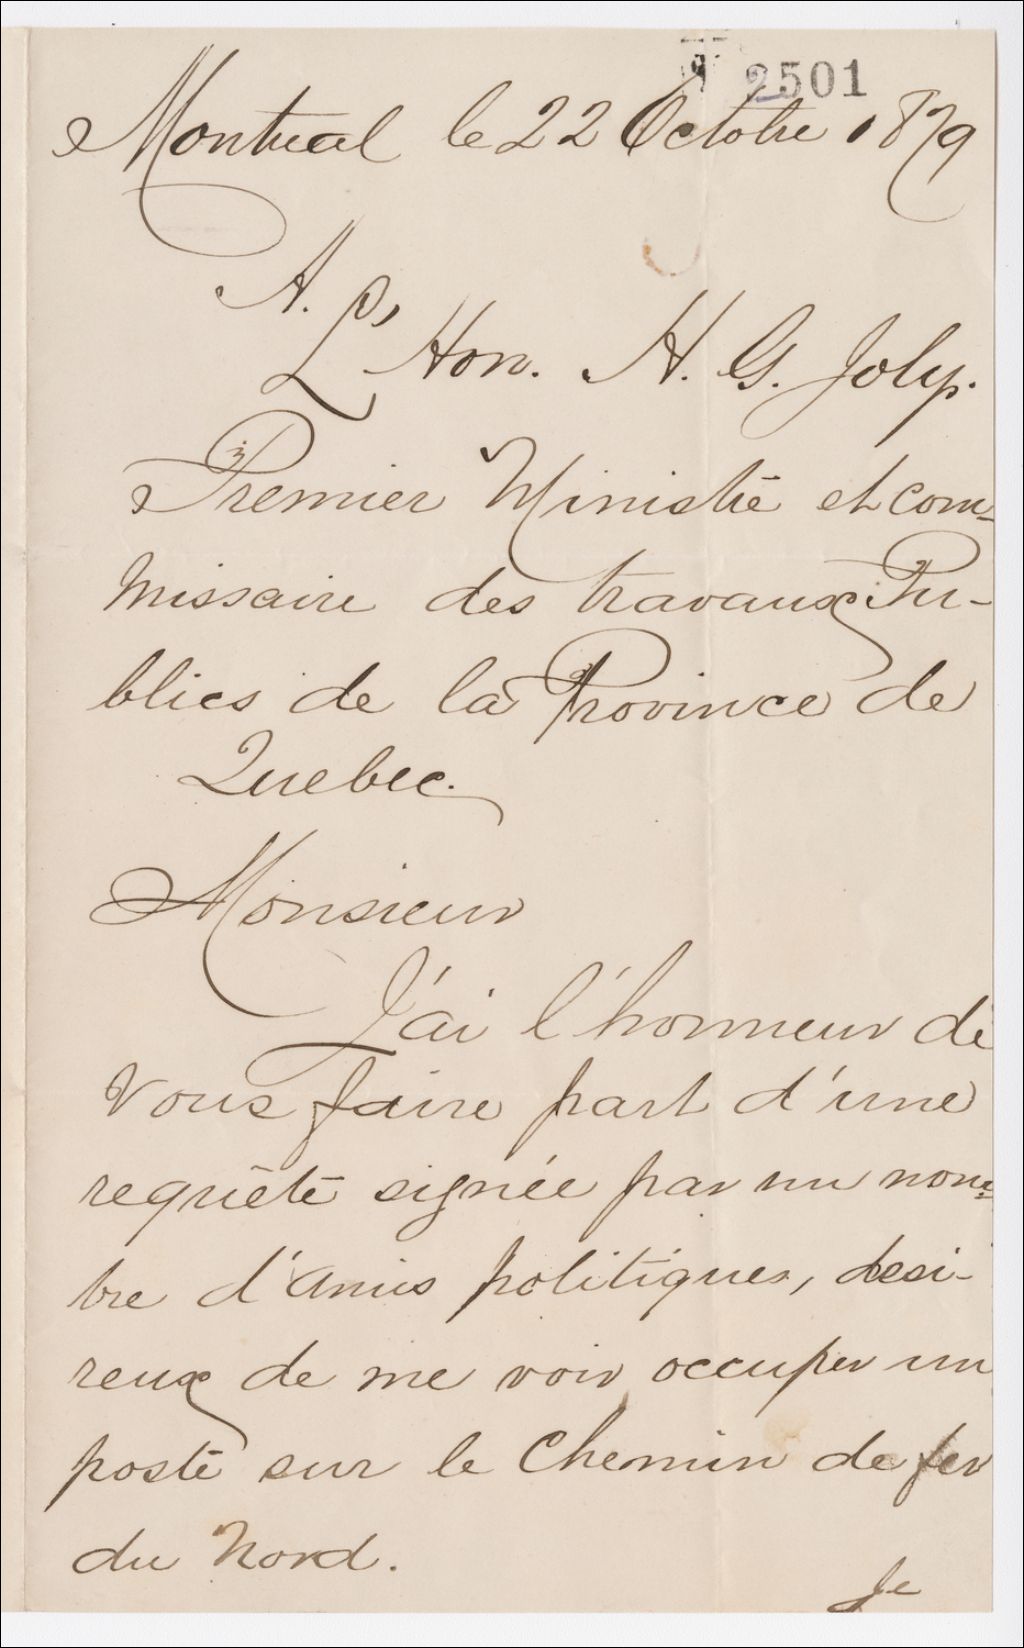 2501
Montreal le 22 Octobre 1879
A.
L'Hon. H. G. Joly.
Premier Ministre et com-
missaire des travaux Pu-
blics de la Province de
Quebec.
Monsieur
J'ai l'honneur de
vous faire part d'une
requête signée par un nom-
bre d'amis politiques, desi-
reux de me voir occuper un
poste sur le Chemin de fer
du Nord.
Je